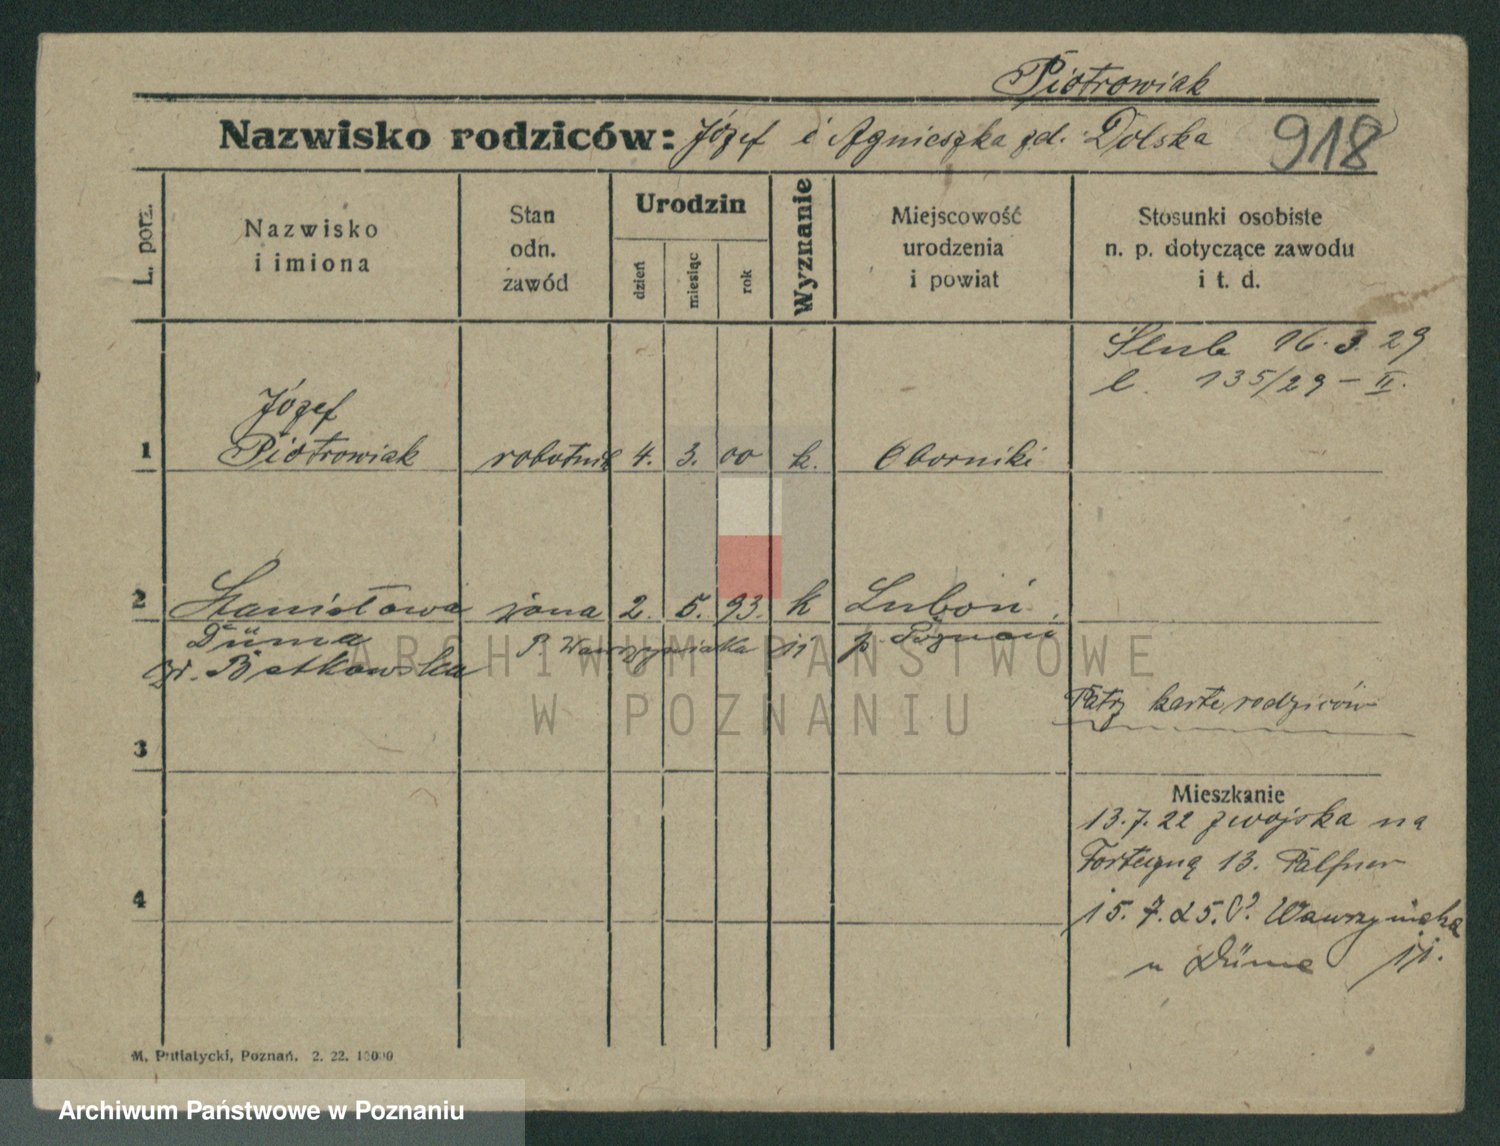 Piotrowiak
Nazwisko rodziców: Józef i Agnieszka zd. Dolska 918
L. porz.
Nazwisko
i imiona
Stan
odn.
zawód
Urodzin
dzień
miesiąc
rok
Wyznanie
Miejscowość
urodzenia
i powiat
Stosunki osobiste
n. p. dotyczące zawodu
i t. d.
Ślub 16.3.29
l. 135/29 – II.
Józef
1 Piotrowiak robotnik 4. 3. 00 k. Oborniki
2 Stanisława żona 2. 5. 93. k Luboń
Düma P. Wawrzyniaka 11 p. Poznań
Betkowska
Patrz kartę rodziców
3
Mieszkanie
13.7.22 z wojska na
13.
4
15.7.25. P. Wawrzyniaka
u Düme 11.
M. Putiatycki, Poznań. 2. 22. 10000
ARCHIWUM PAŃSTWOWE
W POZNANIU
Archiwum Państwowe w Poznaniu